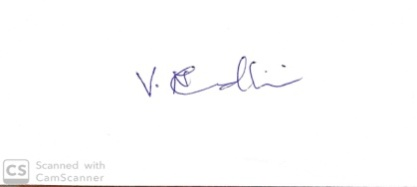 V.
CS Scanned with
CamScanner